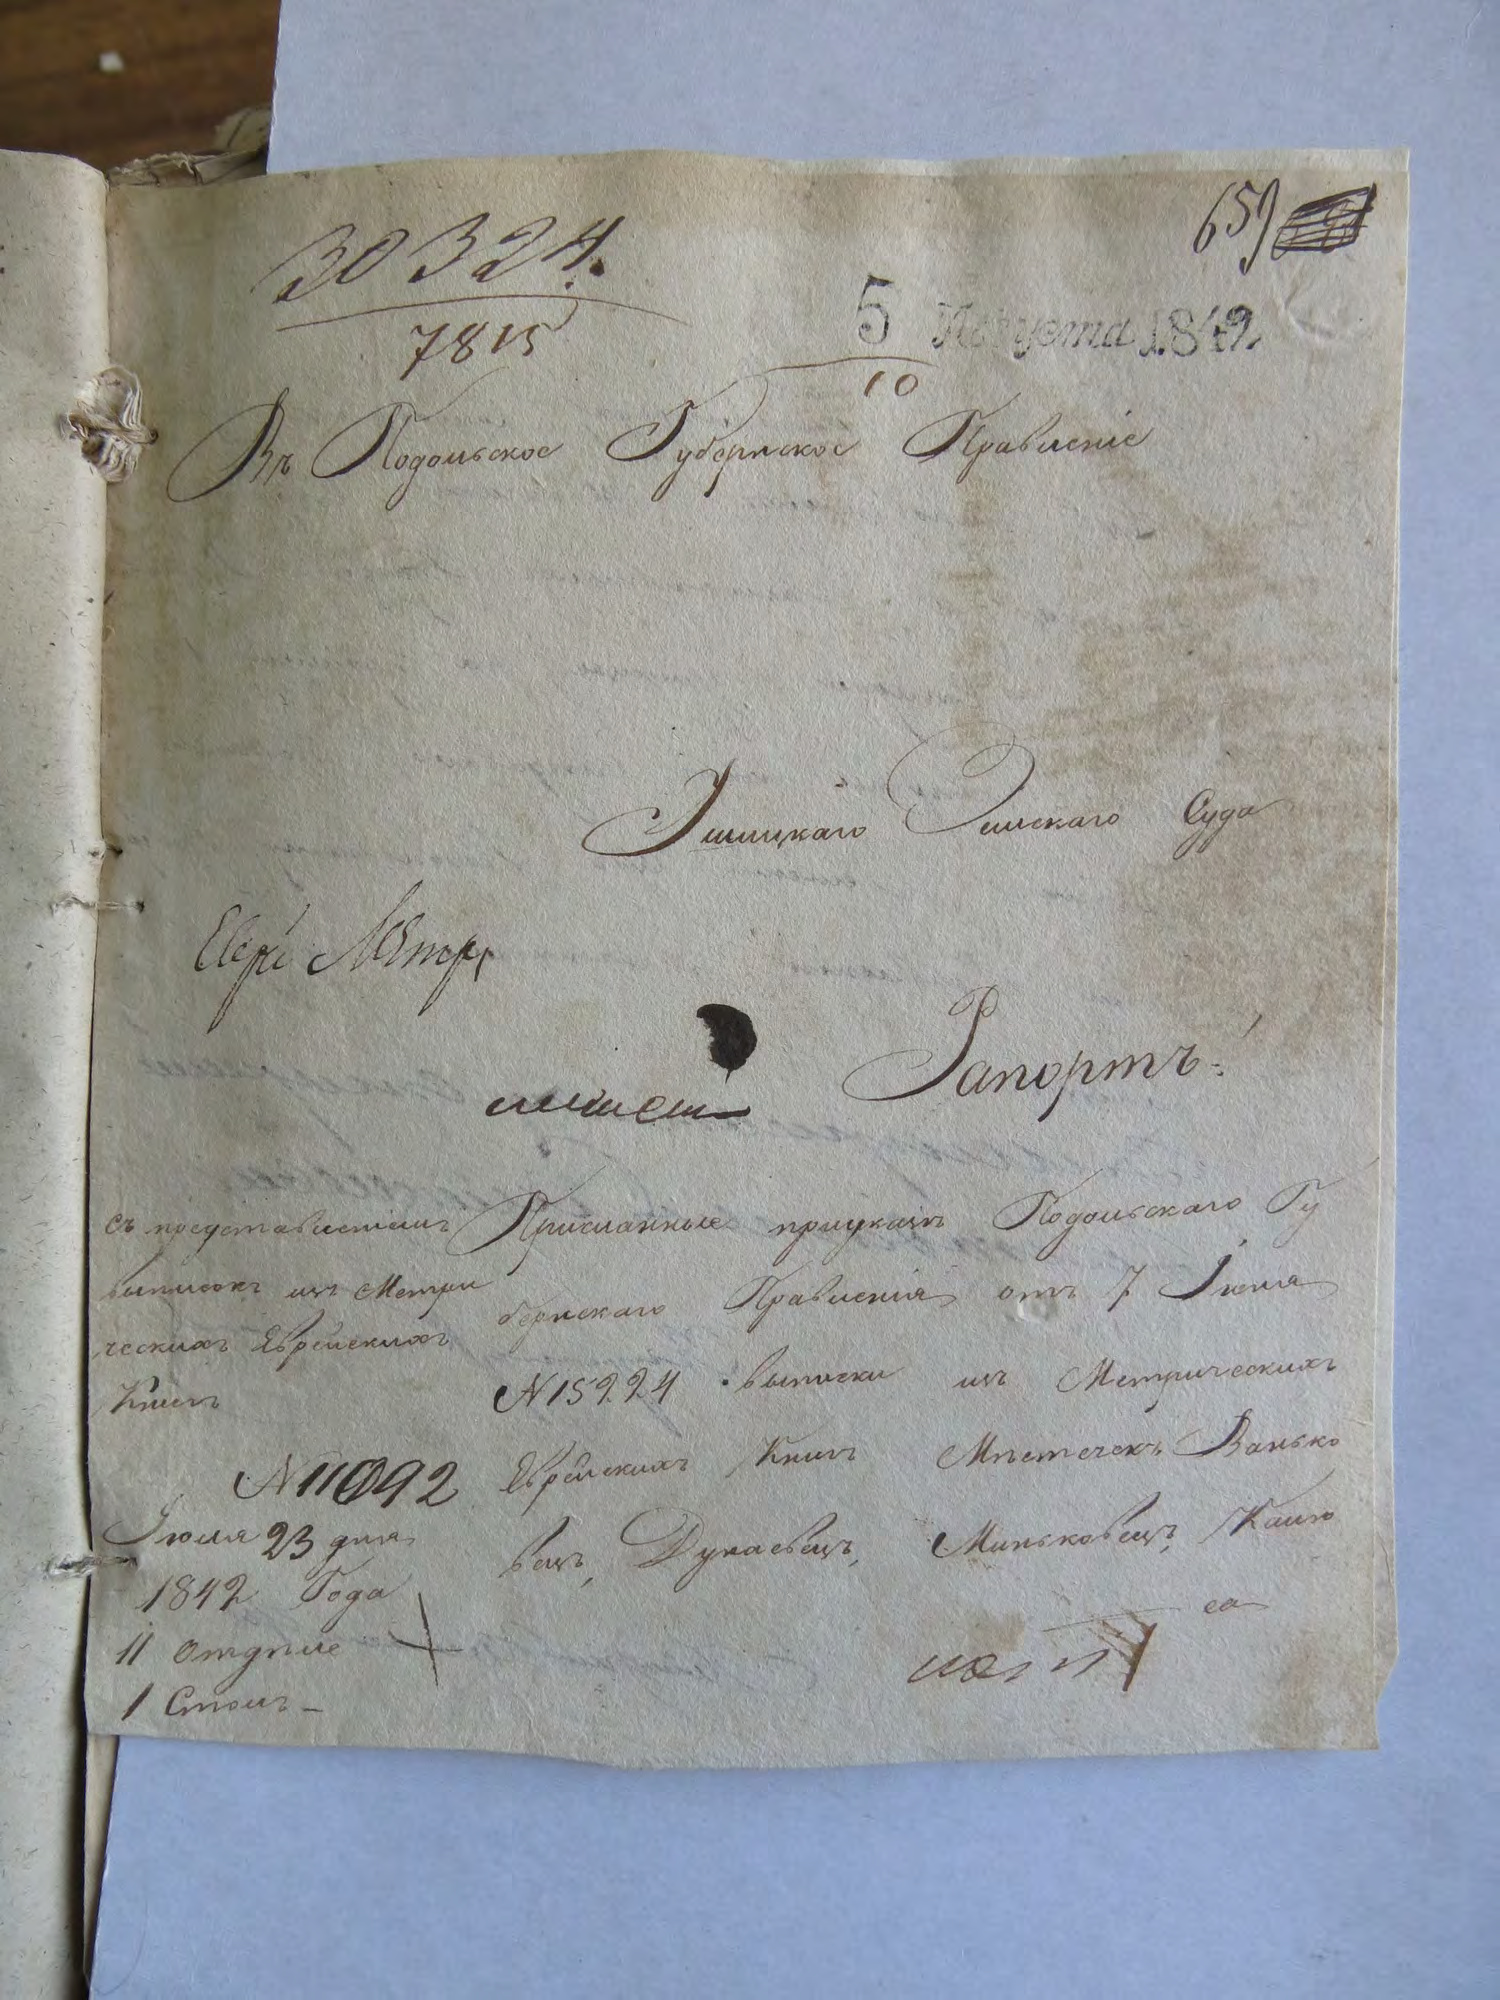 30324.
659
7815
5 Августа 1842
10
Въ Подольское Губернское Правленіе
Ушицкаго Земскаго Суда
Рапортъ:
съ представленіемъ
выписокъ изъ Метри
ческихъ Еврейскихъ
Книгъ
№ 11092
Іюля 23 дня
1842 Года
11 Отдѣле
1 Столъ
Присланные приуказѣ Подольскаго Гу
бернскаго Правленія отъ 7 Іюня
№ 15224 выписки изъ Метрическихъ
Еврейскихъ Книгъ Мѣстечекъ Ванько
вецъ, Дунаевецъ, Миньковецъ, Калю
са